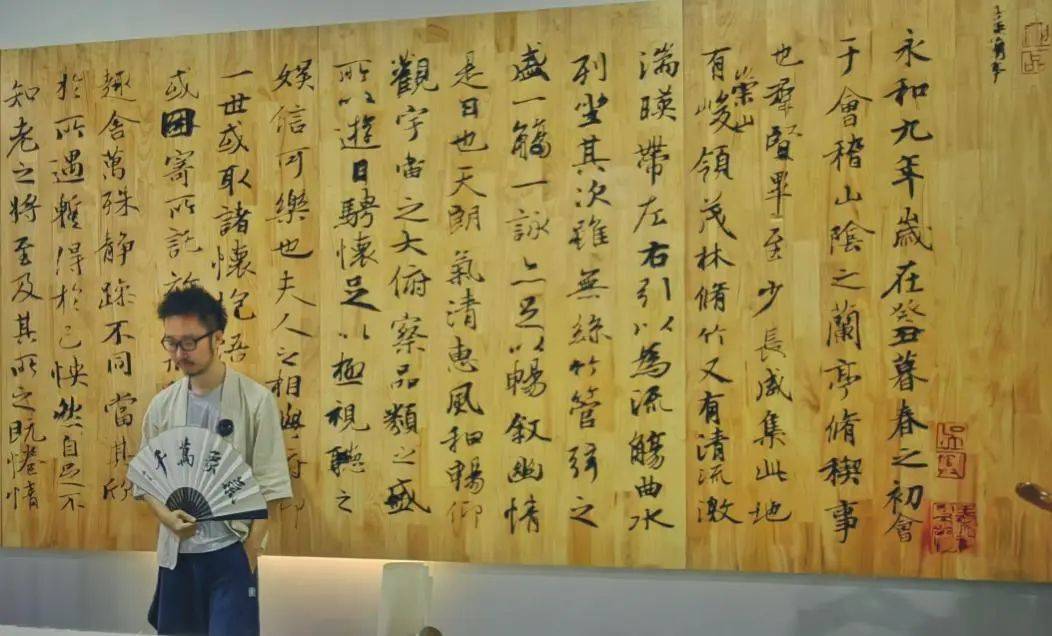 永和九年歲在癸丑暮春之初會
于會稽山陰之蘭亭脩稧事
也羣賢畢至少長咸集此地
有崇山峻領茂林脩竹又有清流激
湍暎帶左右引以為流觴曲水
列坐其次雖無絲竹管弦之
盛一觴一詠亦足以暢敘幽情
是日也天朗氣清惠風和暢仰
觀宇宙之大俯察品類之盛
所以遊目騁懷足以極視聽之
娛信可樂也夫人之相與俯仰
一世或取諸懷抱悟
或因寄所託放
趣舍萬殊静躁不同當其欣
於所遇暫得於己怏然自足不
知老之將至及其所之既惓情
萬